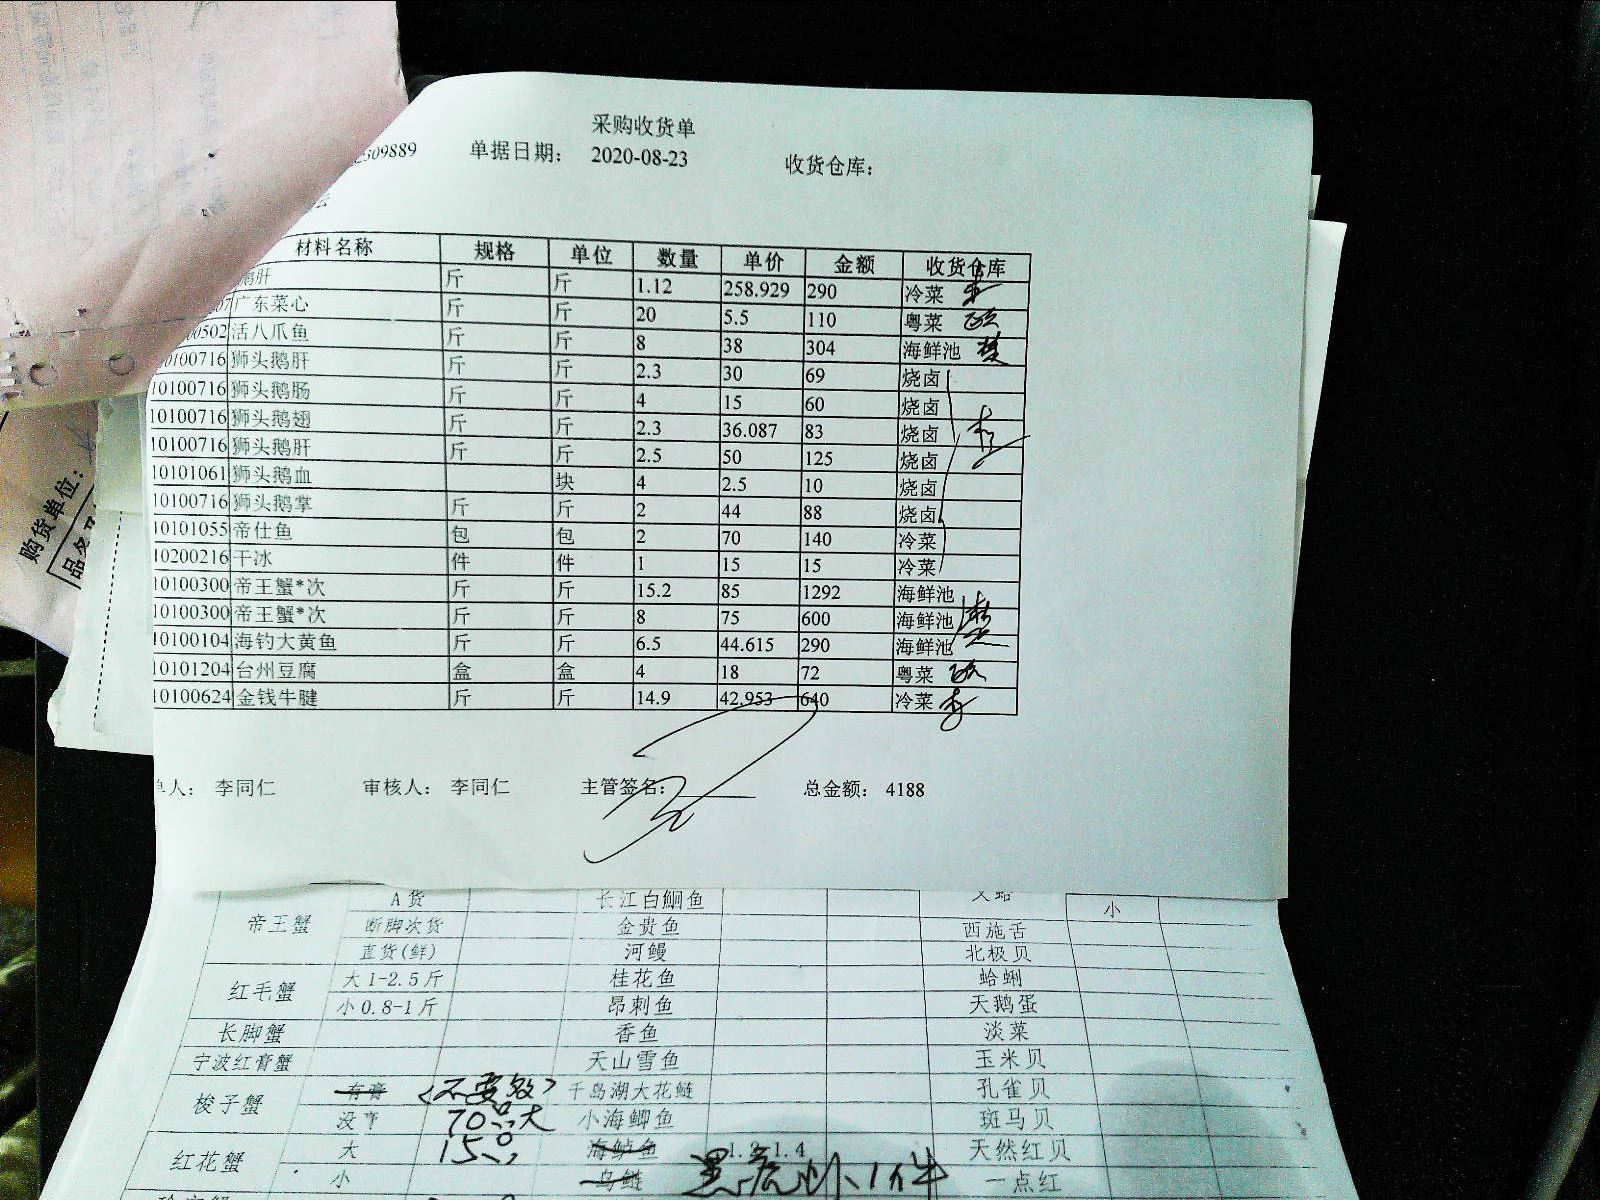 采购收货单
309889 单据日期： 2020-08-23 收货仓库：
材料名称 规格 单位 数量 单价 金额 收货仓库
鹅肝 斤 斤 1.12 258.929 290 冷菜
广东菜心 斤 斤 20 5.5 110 粤菜
00502 活八爪鱼 斤 斤 8 38 304 海鲜池
0100716 狮头鹅肝 斤 斤 2.3 30 69 烧卤
10100716 狮头鹅肠 斤 斤 4 15 60 烧卤
10100716 狮头鹅翅 斤 斤 2.3 36.087 83 烧卤
10100716 狮头鹅肝 斤 斤 2.5 50 125 烧卤
10101061 狮头鹅血 块 4 2.5 10 烧卤
10100716 狮头鹅掌 斤 斤 2 44 88 烧卤
10101055 帝仕鱼 包 包 2 70 140 冷菜
10200216 干冰 件 件 1 15 15 冷菜
10100300 帝王蟹*次 斤 斤 15.2 85 1292 海鲜池
10100300 帝王蟹*次 斤 斤 8 75 600 海鲜池
10100104 海钓大黄鱼 斤 斤 6.5 44.615 290 海鲜池
10101204 台州豆腐 盒 盒 4 18 72 粤菜
10100624 金钱牛腱 斤 斤 14.9 42.953 640 冷菜
单人： 李同仁 审核人： 李同仁 主管签名： 总金额： 4188
购货单位：
品名
帝王蟹 A货 长江白鮰鱼 小
断脚次货 金贵鱼 西施舌
直货(鲜) 河鳗 北极贝
红毛蟹 大1-2.5斤 桂花鱼 蛤蜊
小0.8-1斤 昂刺鱼 天鹅蛋
长脚蟹 香鱼 淡菜
宁波红膏蟹 天山雪鱼 玉米贝
梭子蟹 有膏 千岛湖大花鲢 孔雀贝
没膏 70只大 小海鲫鱼 斑马贝
红花蟹 大 15只 海鲈鱼 1.2-1.4 天然红贝
小 乌鲢 黑虎虾1件 一点红